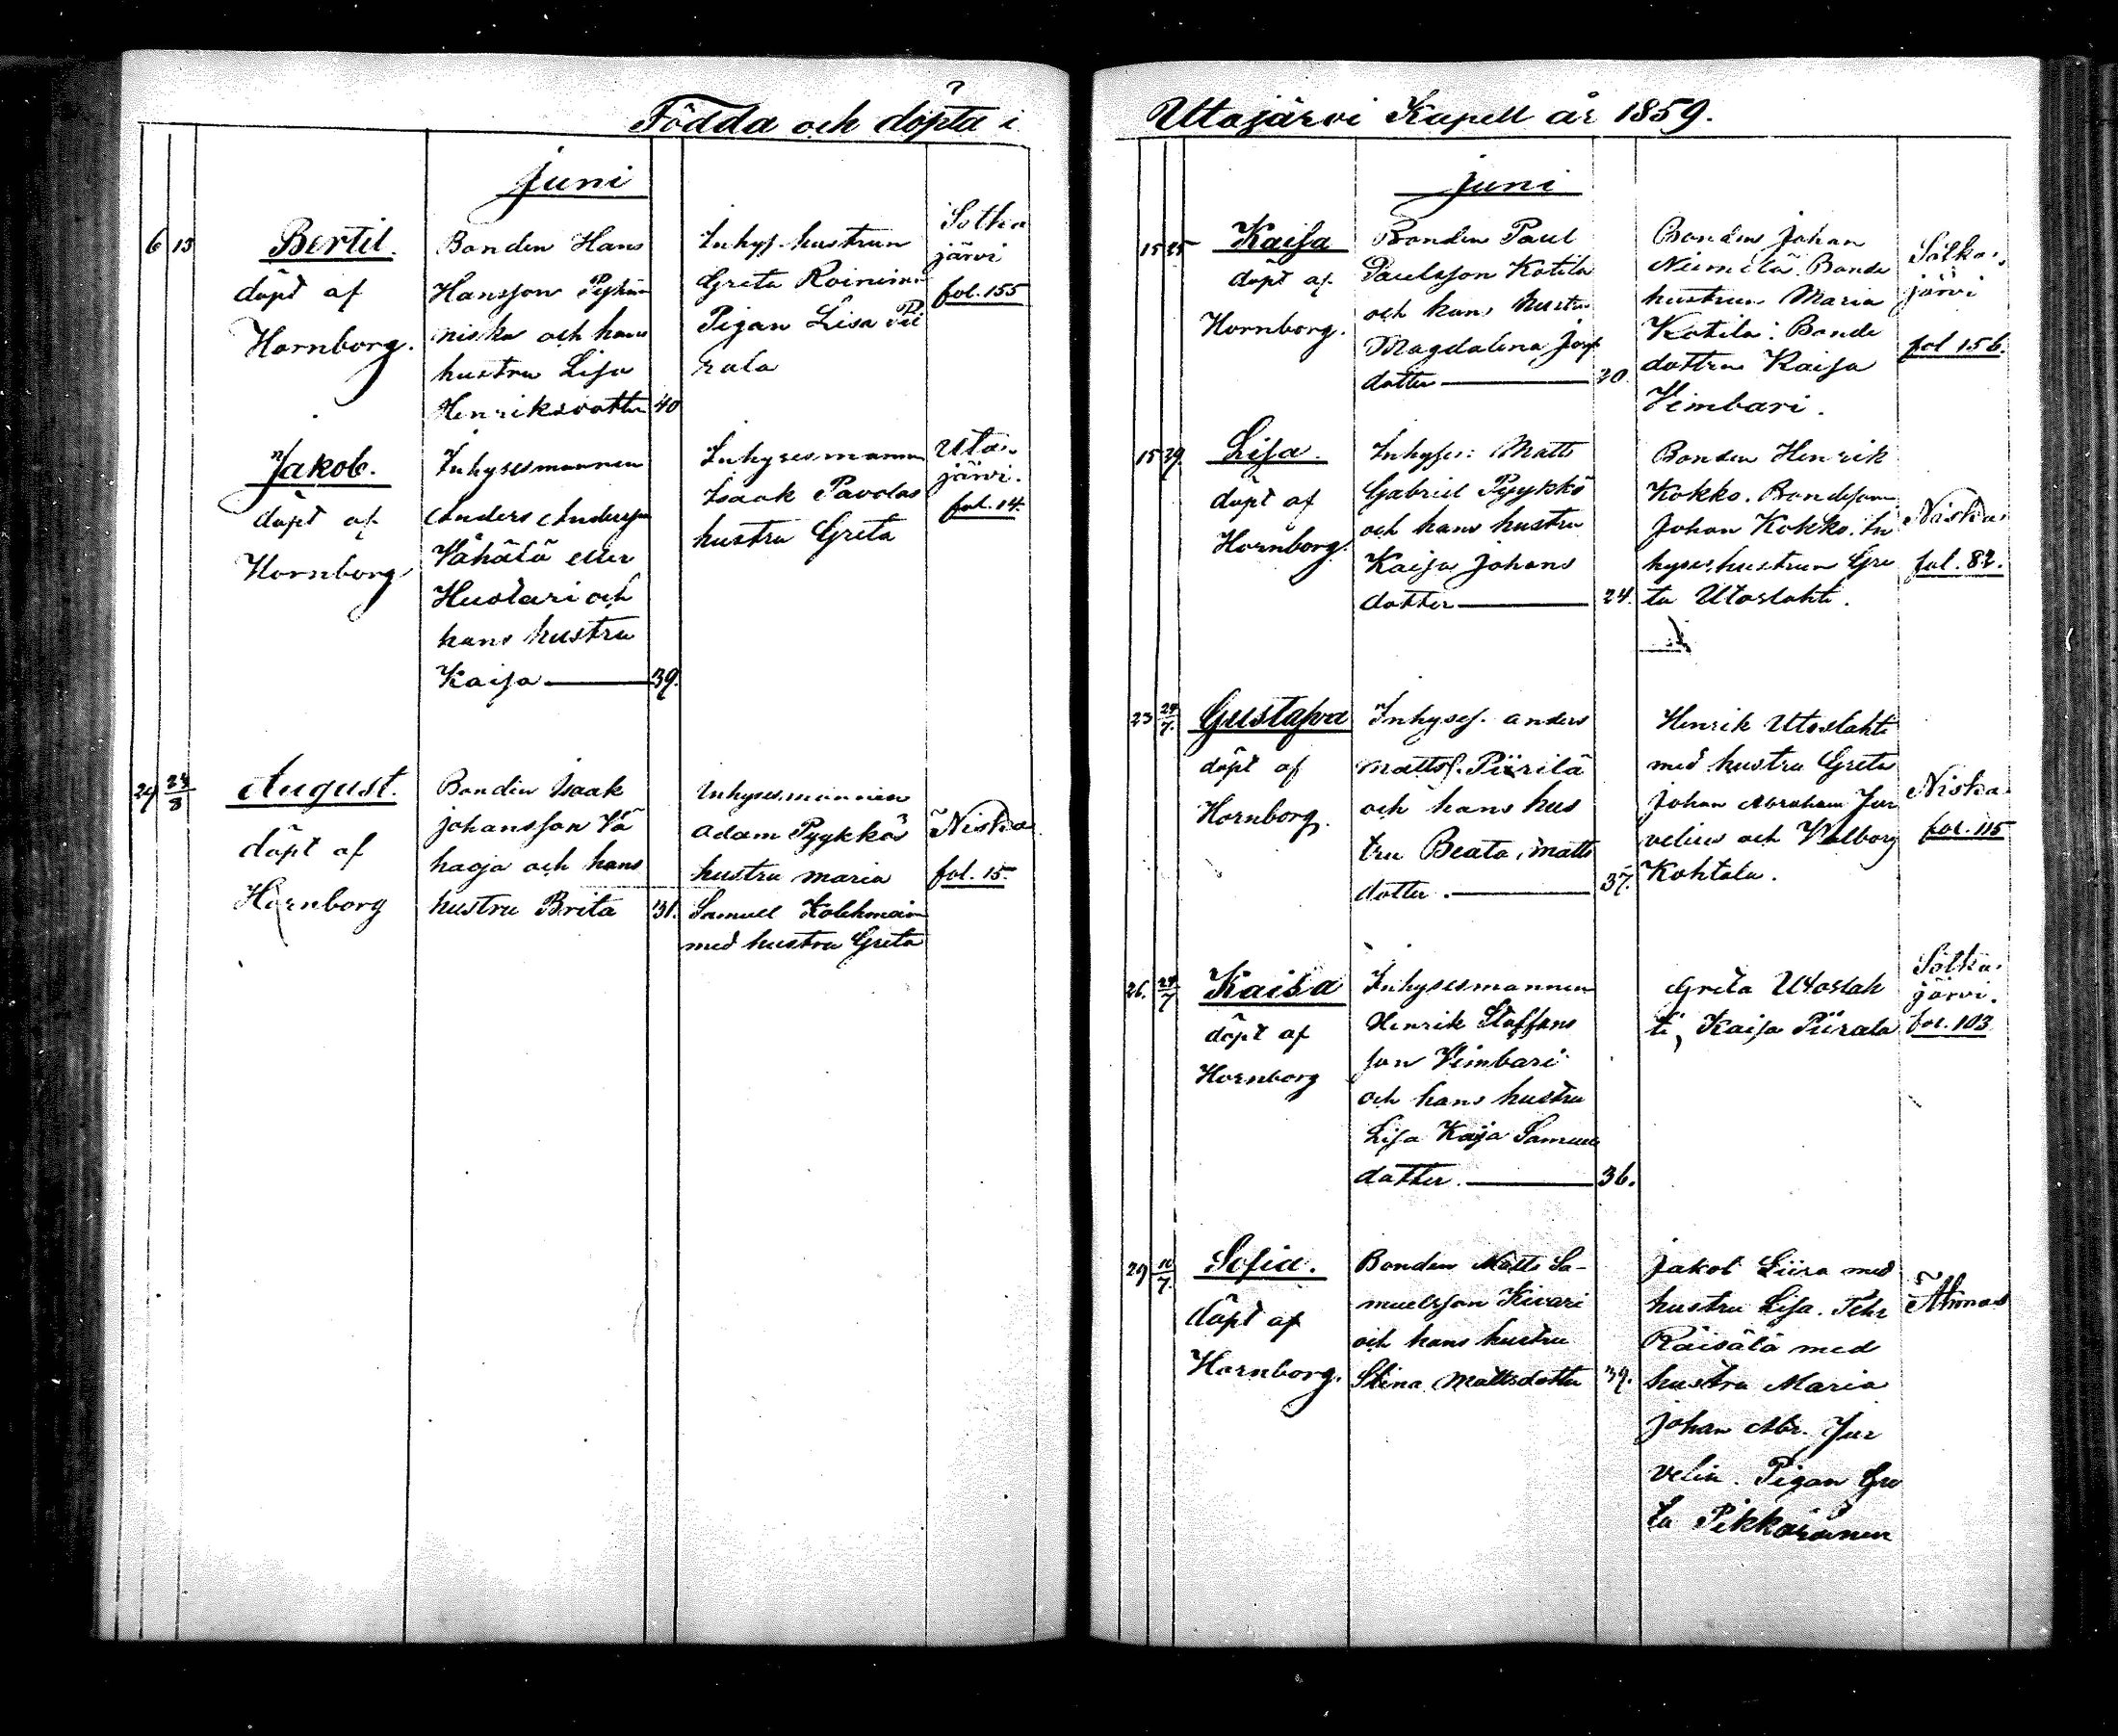 Födda och döpta i
Juni
6 13 Bertil.
döpt af
Hornborg.
Bonden Hans
Hansson
niska och hans
hustru Lisa
Henriksdotter 40
Inhys. hustrun
Greta Roininen
Pigan Lisa Pii
rala
Sotka
järvi
fol. 155
Jakob.
döpt af
Hornborg
Inhysesmannen
Anders Andersson
Vähälä eller
Huotari och
hans hustru
Kaisa 39.
Inhysesmannen
Isaak Pavolas
hustru Greta
Utai
järvi.
fol. 14.
29 24/8 August.
döpt af
Hornborg
Bonden Isaak
Johansson Vä
haoja och hans
hustru Brita 31.
Inhysesmannen
Adam Pyykkös
hustru Maria
Samuel Kolehmain
med hustru Greta
Niska
fol. 15.
Utajärvi Kapell år 1859.
Juni
15 25 Kaisa
döpt af
Hornborg.
Bonden Paul
Paulsson Kotila
och hans hustru
Magdalena Josefs
dotter 30.
Bonden Johan
Niemelä. Bonde
hustrun Maria
Kotila. Bonde
dottren Kaisa
Vimbari.
Sotka
järvi
fol 156.
15 29. Lisa.
döpt af
Hornborg.
Inhyses: Matts
Gabriel Pyykkö
och hans hustru
Kaisa Johans
dotter 24.
Bonden Henrik
Kokko. Bondeson
Johan Kokko. In
hyses hustrun Gre
ta Utoslahti.
Niska
fol. 82.
23 24/7. Gustafva
döpt af
Hornborg.
Inhyses. Anders
Mattss. Piirilä
och hans hus
tru Beata Matts
dotter. 37.
Henrik Utoslahti
med hustru Greta
Johan Abraham Jur
velius och Valborg
Kohtala.
Niska
fol. 115
26. 24/7 Kaisa
döpt af
Hornborg
Inhysesmannen
Henrik Staffans
son Vimbari
och hans hustru
Lisa Kaisa Samuels
dotter. 36.
Greta Utoslah
ti, Kaisa Piirala
Sotka
järvi.
fol. 103
29 10/7. Sofia.
döpt af
Hornborg.
Bonden Matts Sa-
muelsson Kivari
och hans hustru
Stina Mattsdotter 39.
Jakob Liira med
hustru Lisa. Pehr
Räisälä med
hustru Maria
Johan Abr. Jur
velin. Pigan Gre
ta Pikkarainen
Ahmas